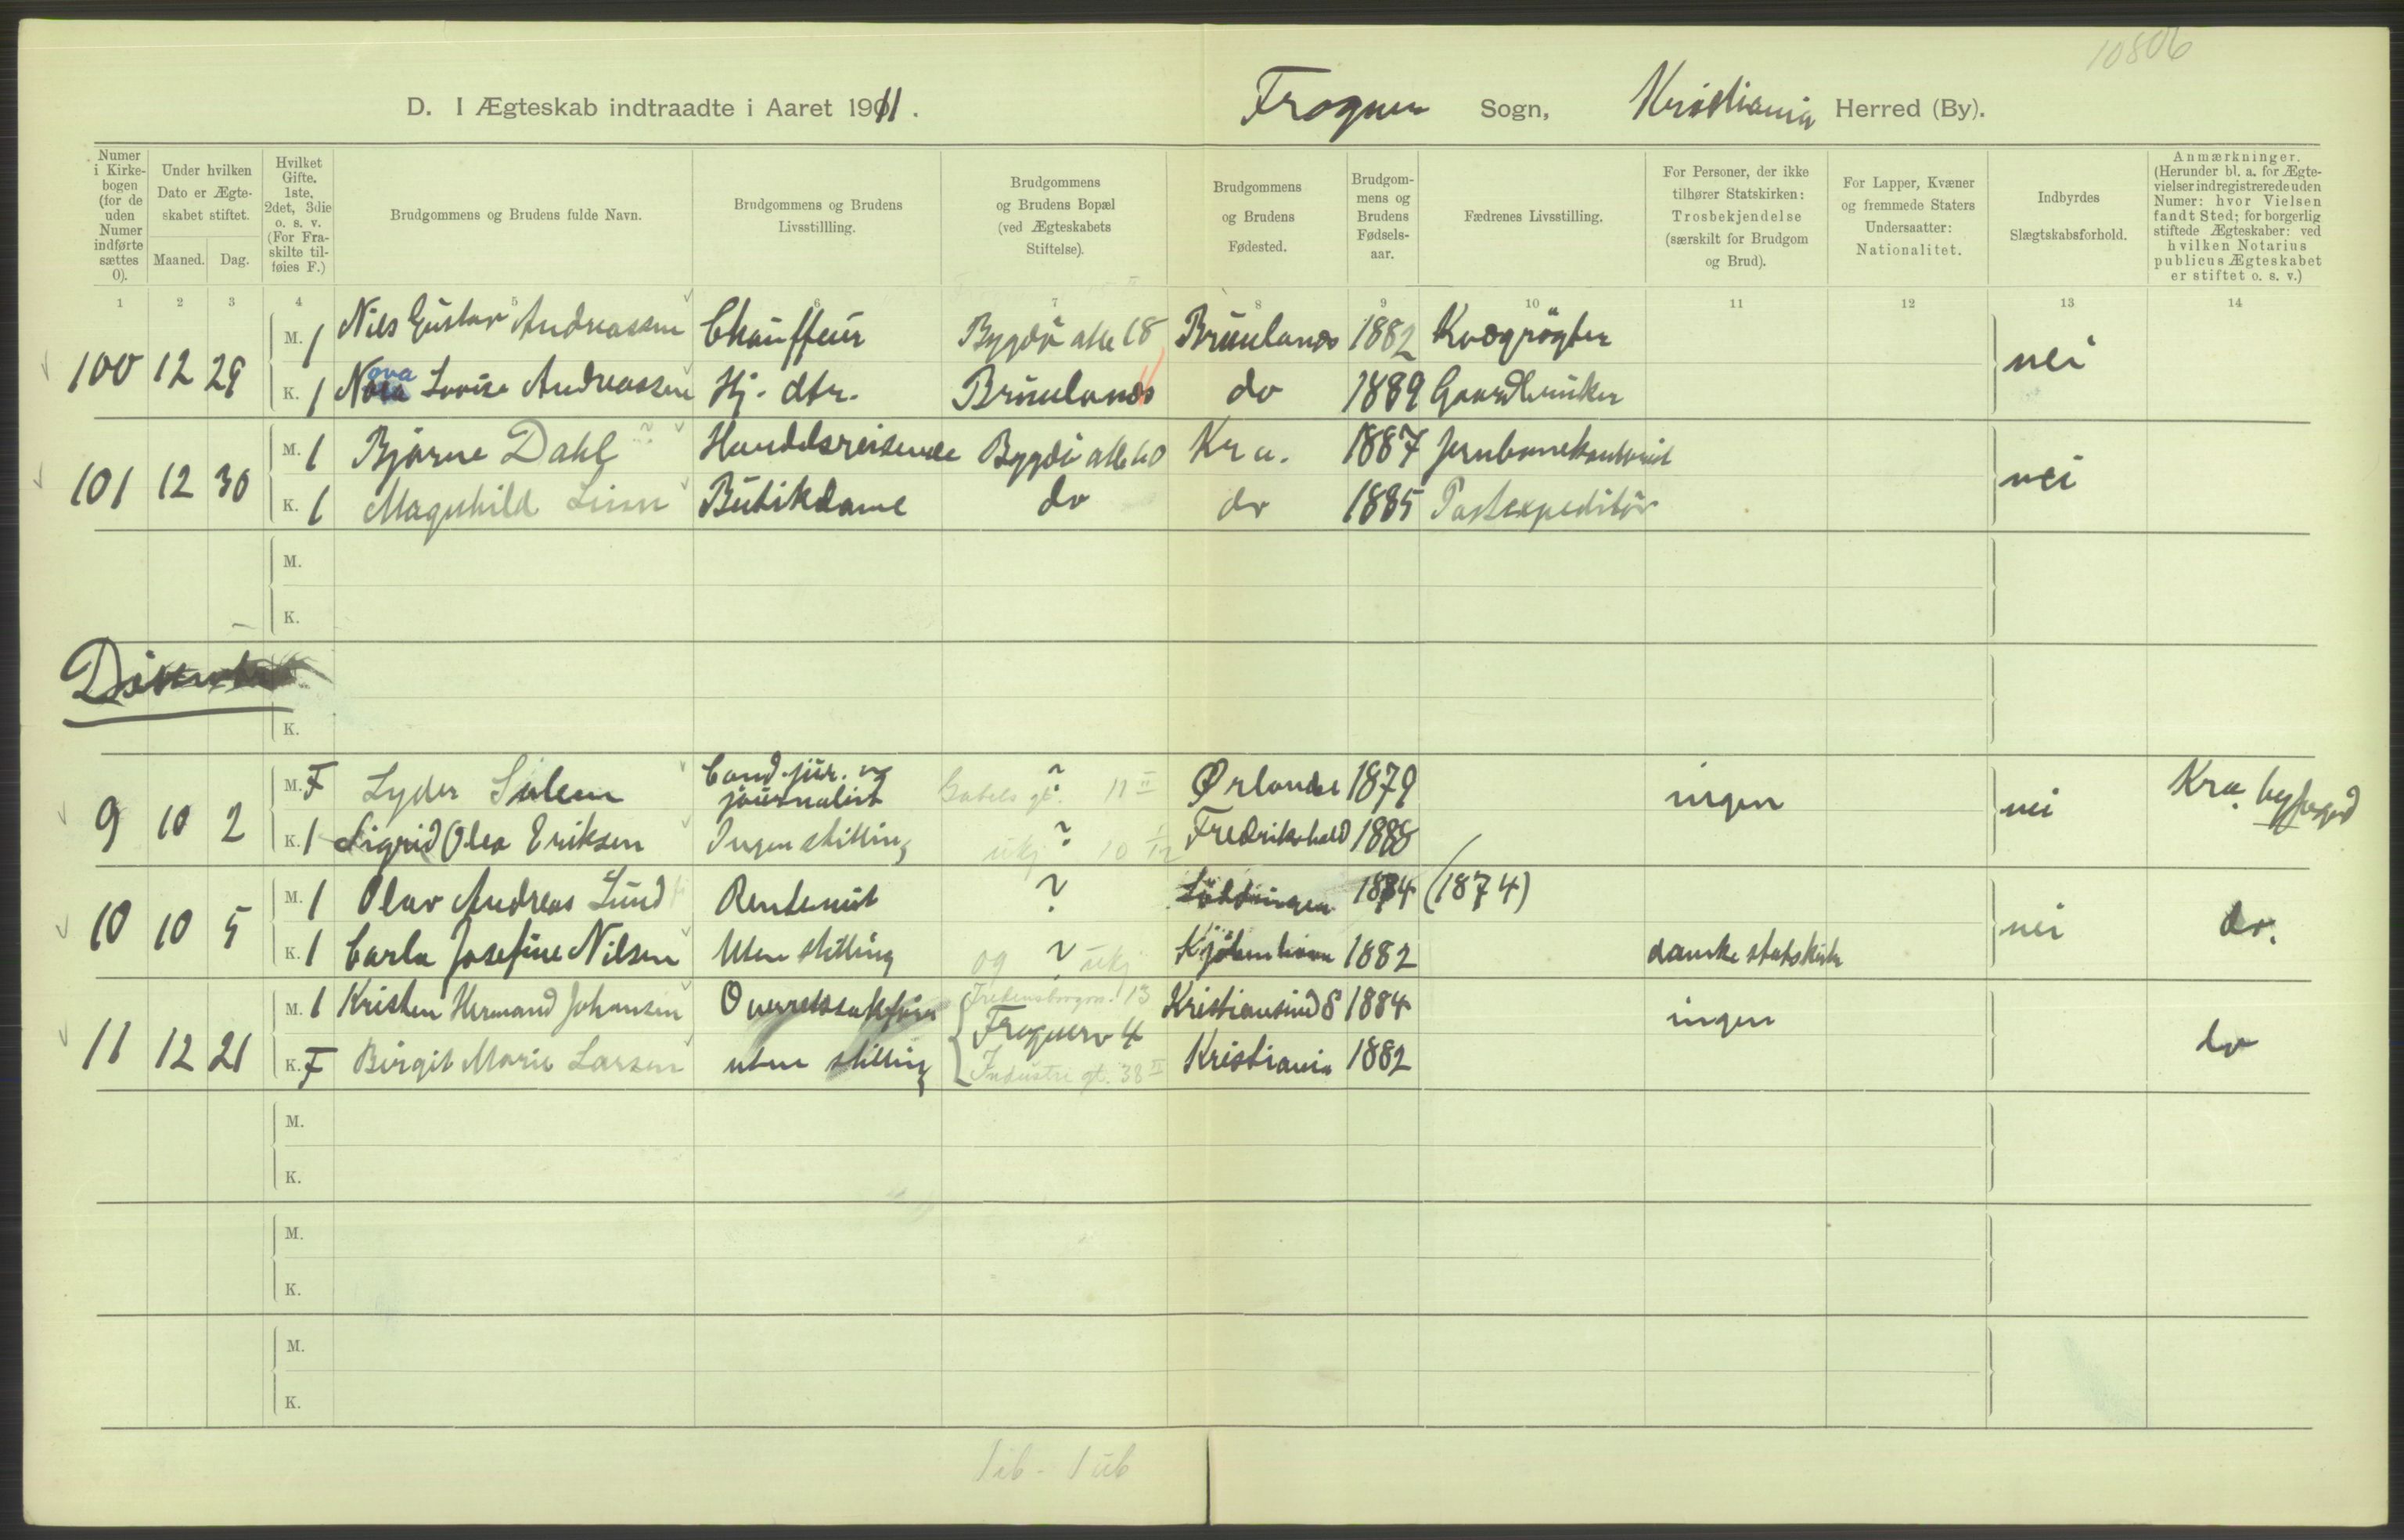 10806
D. I Ægteskab indtraadte i Aaret 1911. Frogner Sogn, Kristiania Herred (By).
Numer i Kirkebogen (for de uden Numer indførte sættes 0).
Under hvilken Dato er Ægteskabet stiftet.
Maaned. Dag.
Hvilket Gifte. 1ste, 2det, 3die o. s. v. (For Fraskilte tilføies F.)
Brudgommens og Brudens fulde Navn.
Brudgommens og Brudens Livsstillling.
Brudgommens og Brudens Bopæl (ved Ægteskabets Stiftelse).
Brudgommens og Brudens Fødested.
Brudgommens og Brudens Fødselsaar.
Fædrenes Livsstilling.
For Personer, der ikke tilhører Statskirken: Trosbekjendelse (særskilt for Brudgom og Brud).
For Lapper, Kvæner og fremmede Staters Undersaatter: Nationalitet.
Indbyrdes Slægtskabsforhold.
Anmærkninger. (Herunder bl. a. for Ægtevielser indregistrerede uden Numer: hvor Vielsen fandt Sted; for borgerlig stiftede Ægteskaber: ved hvilken Notarius publicus Ægteskabet er stiftet o. s. v.)
1 2 3 4 5 6 7 8 9 10 11 12 13 14
100 12 29 M. 1 Nils Gustav Andreassen Chauffeur Bygdö alle 18 Brunlanæs 1882 Kvægrögter nei
K. 1 Nova Lovise Andreassen Hj. dtr. Brunlanæs do 1889 Gaardbruker
101 12 30 M. 1 Bjarne Dahl Handelsreisende Bygdö alle 60 Kra. 1887 Jernbanekontorist nei
K. 1 Magnhild Linn Butikdame do do 1885 Postexpeditör
M.
K.
K.
9 10 2 M. F Lyder Solem Cand. jur. journalist Gabels gt. ? 11 II Ørlandet 1879 ingen nei Kra. byfoged
K. 1 Sigrid Olea Eriksen Ingen stilling ukj ? Fredrikshald 1888
10 10 5 M. 1 Olav Andreas Lund Rentenist ? Lödingen 1884 (1874) nei do.
K. 1 Carla Josefine Nilsen Uten stilling og ? ukj Kjöbenhavn 1882 danske statskirke
11 12 21 M. 1 Kristen Hermand Johansen Overretssakförer Fredensborgv. 13 Kristiansund S 1884 ingen do
Frognerv 4
K. F Birgit Marie Larsen uten stilling Industri gt. 38 II Kristiania 1882
M.
K.
M.
K.
M.
K.
1 ib - 1 ub